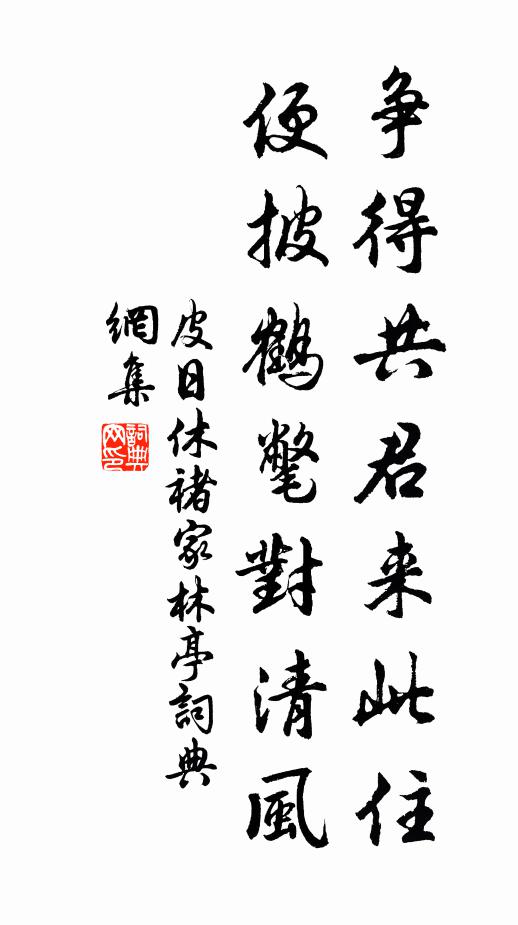 争得共君来此住
便披鶴氅對清風
皮日休褚家林亭詞典
網集
詞典
网印